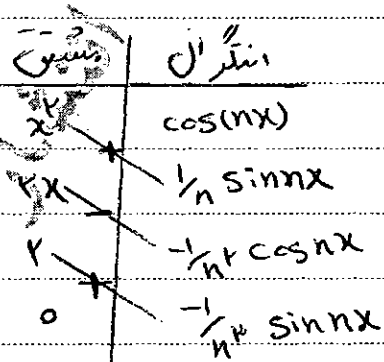 مشتق انتگرال
x² cos(nx)
+ 1/n sin nx
۲x
- -1/n² cos nx
۲
+ -1/n³ sin nx
0